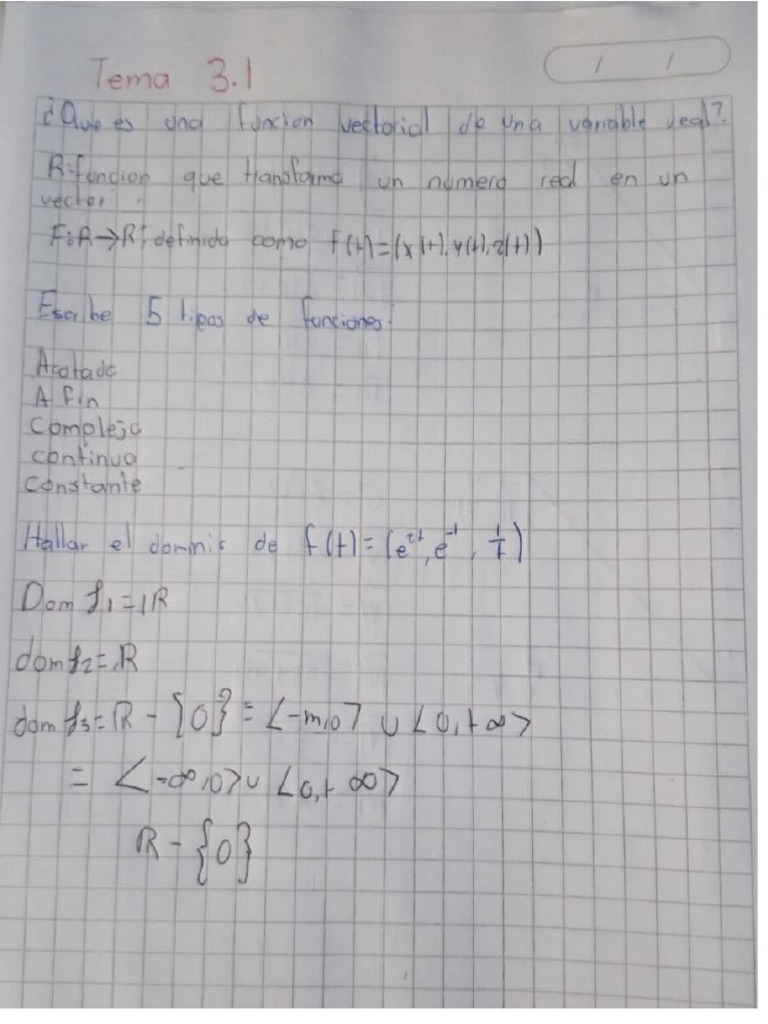 Tema 3.1
/ /
¿Que es una funcion vectorial de una variable real?
R=funcion que transforma un numero real en un
vector.
F:R→R³, definido como f(t)=(x(t), y(t), z(t))
Escribe 5 tipos de funciones:
Acotada
A fin
Compleja
continua
constante
Hallar el dominio de f(t)=(e²ᵗ, e⁻ᵗ, 1/t)
Dom f₁=IR
dom f₂=R
dom f₃=R-{0}=<-∞,0> ∪ <0,+∞>
= <-∞,0>∪ <0,+∞>
R-{0}